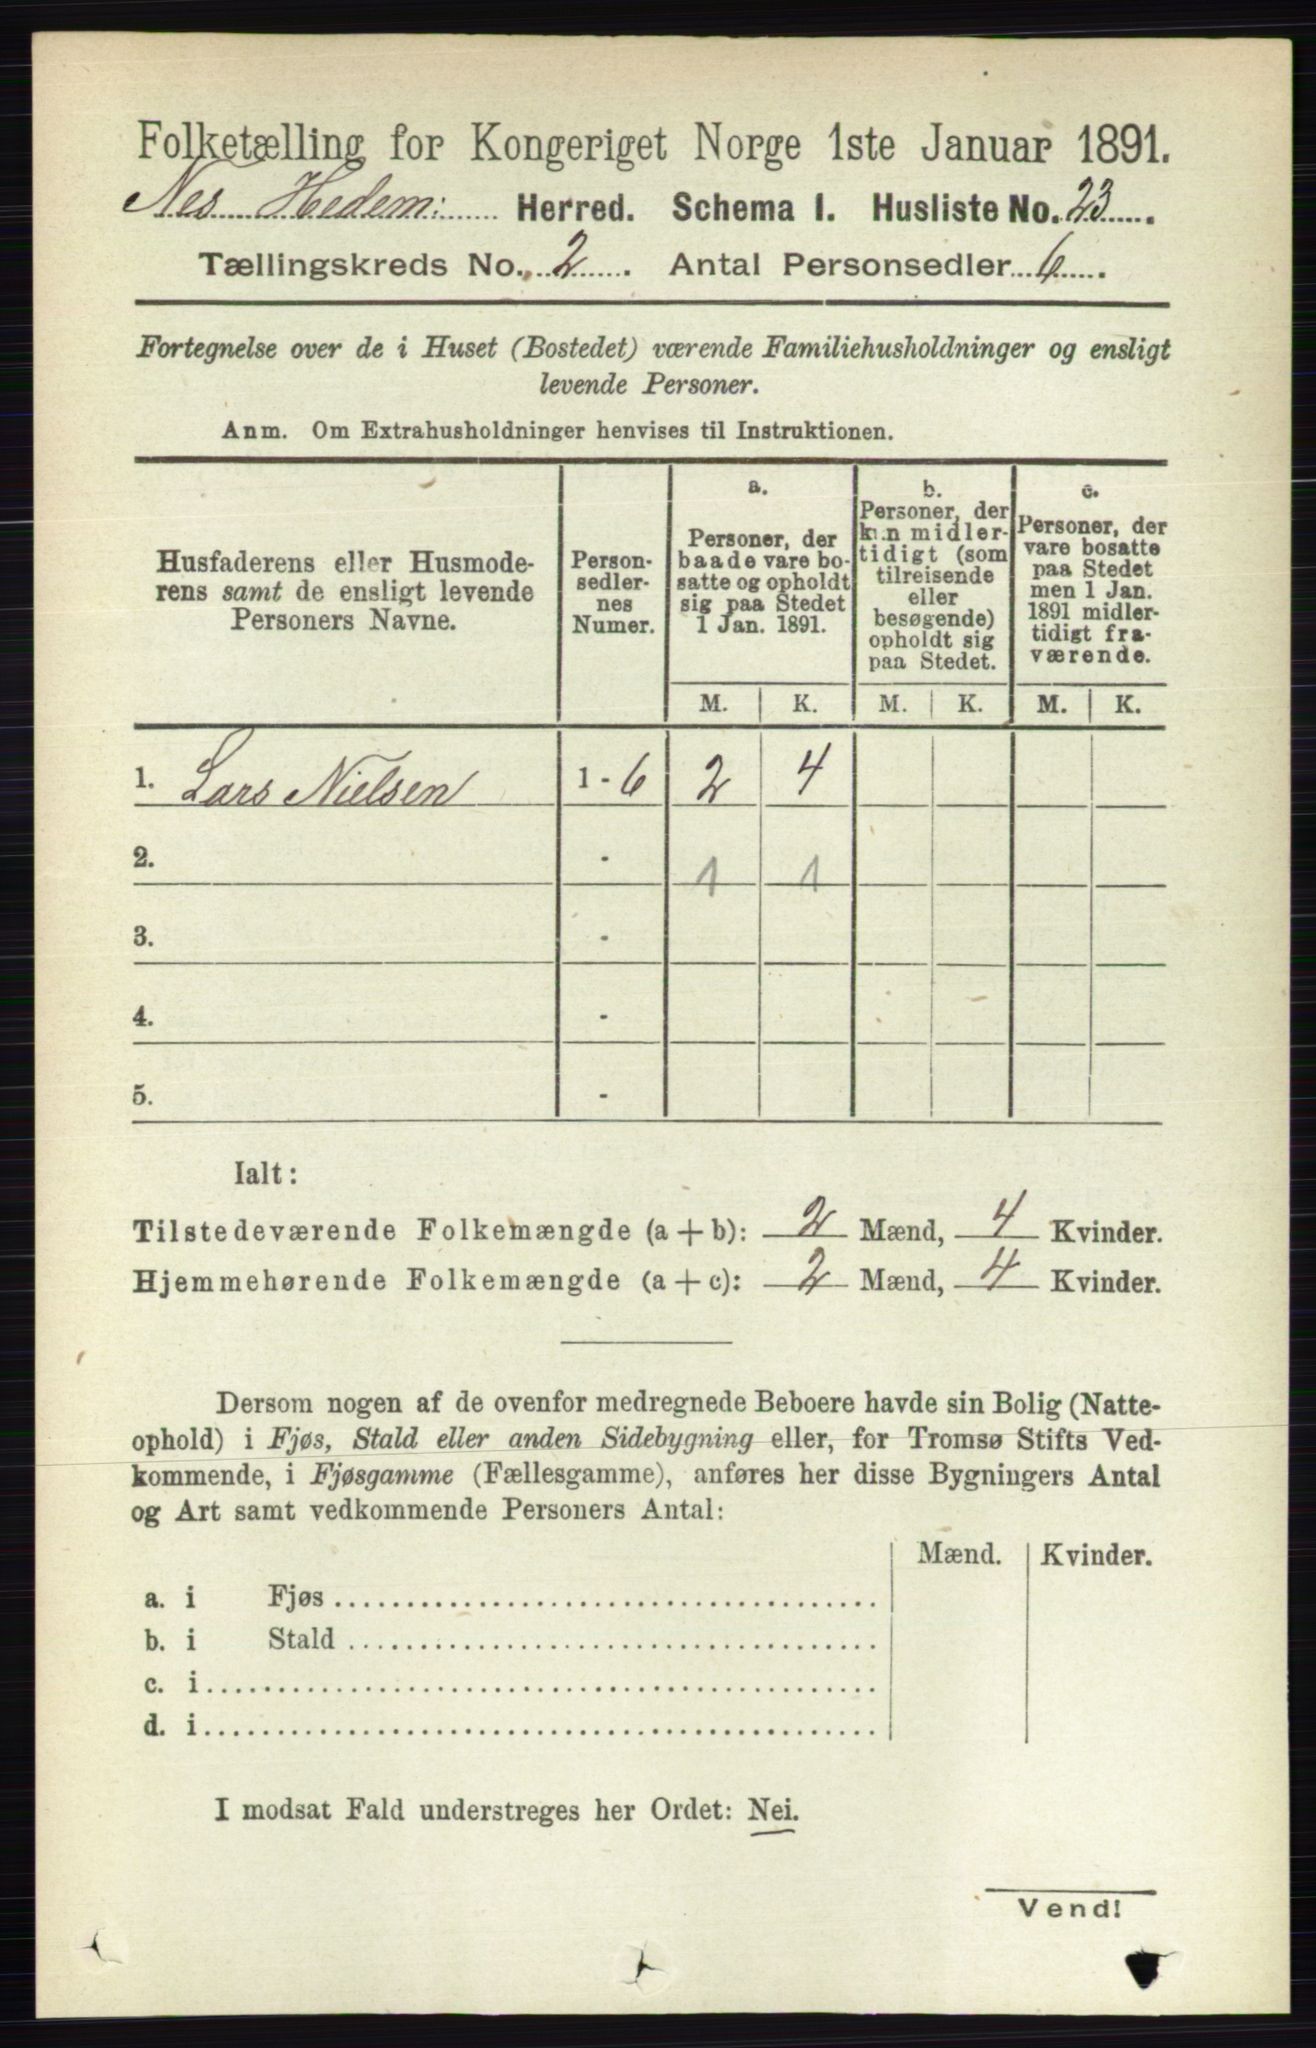 Folketælling for Kongeriget Norge 1ste Januar 1891.
Nes Hedem: Herred. Schema I. Husliste No. 23
Tællingskreds No. 2. Antal Personsedler 6.
Fortegnelse over de i Huset (Bostedet) værende Familiehusholdninger og ensligt
levende Personer.
Anm. Om Extrahusholdninger henvises til Instruktionen.
Husfaderens eller Husmode-
rens samt de ensligt levende
Personers Navne.
Person-
sedler-
nes
Numer.
a.
Personer, der
baade vare bo-
satte og opholdt
sig paa Stedet
1 Jan. 1891.
b.
Personer, der
kun midler-
tidigt (som
tilreisende
eller
besøgende)
opholdt sig
paa Stedet.
c.
Personer, der
vare bosatte
paa Stedet
men 1 Jan.
1891 midler-
tidigt fra-
værende.
M. K. M. K. M. K.
1. Lars Nielsen 1 - 6 2 4
2. - 1 1
3. -
4. -
5. -
Ialt:
Tilstedeværende Folkemængde (a + b): 2 Mænd, 4 Kvinder.
Hjemmehørende Folkemængde (a + c): 2 Mænd, 4 Kvinder.
Dersom nogen af de ovenfor medregnede Beboere havde sin Bolig (Natte-
ophold) i Fjøs, Stald eller anden Sidebygning eller, for Tromsø Stifts Ved-
kommende, i Fjøsgamme (Fællesgamme), anføres her disse Bygningers Antal
og Art samt vedkommende Personers Antal:
Mænd. Kvinder.
a. i Fjøs
b. i Stald
c. i
d. i
I modsat Fald understreges her Ordet: Nei.
Vend!